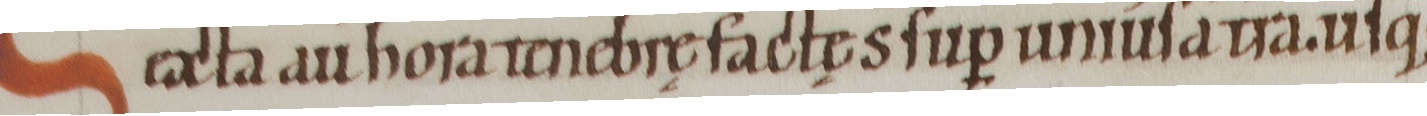 Sexta au hora tenebrę factę s sup uniuſa tra. uſq